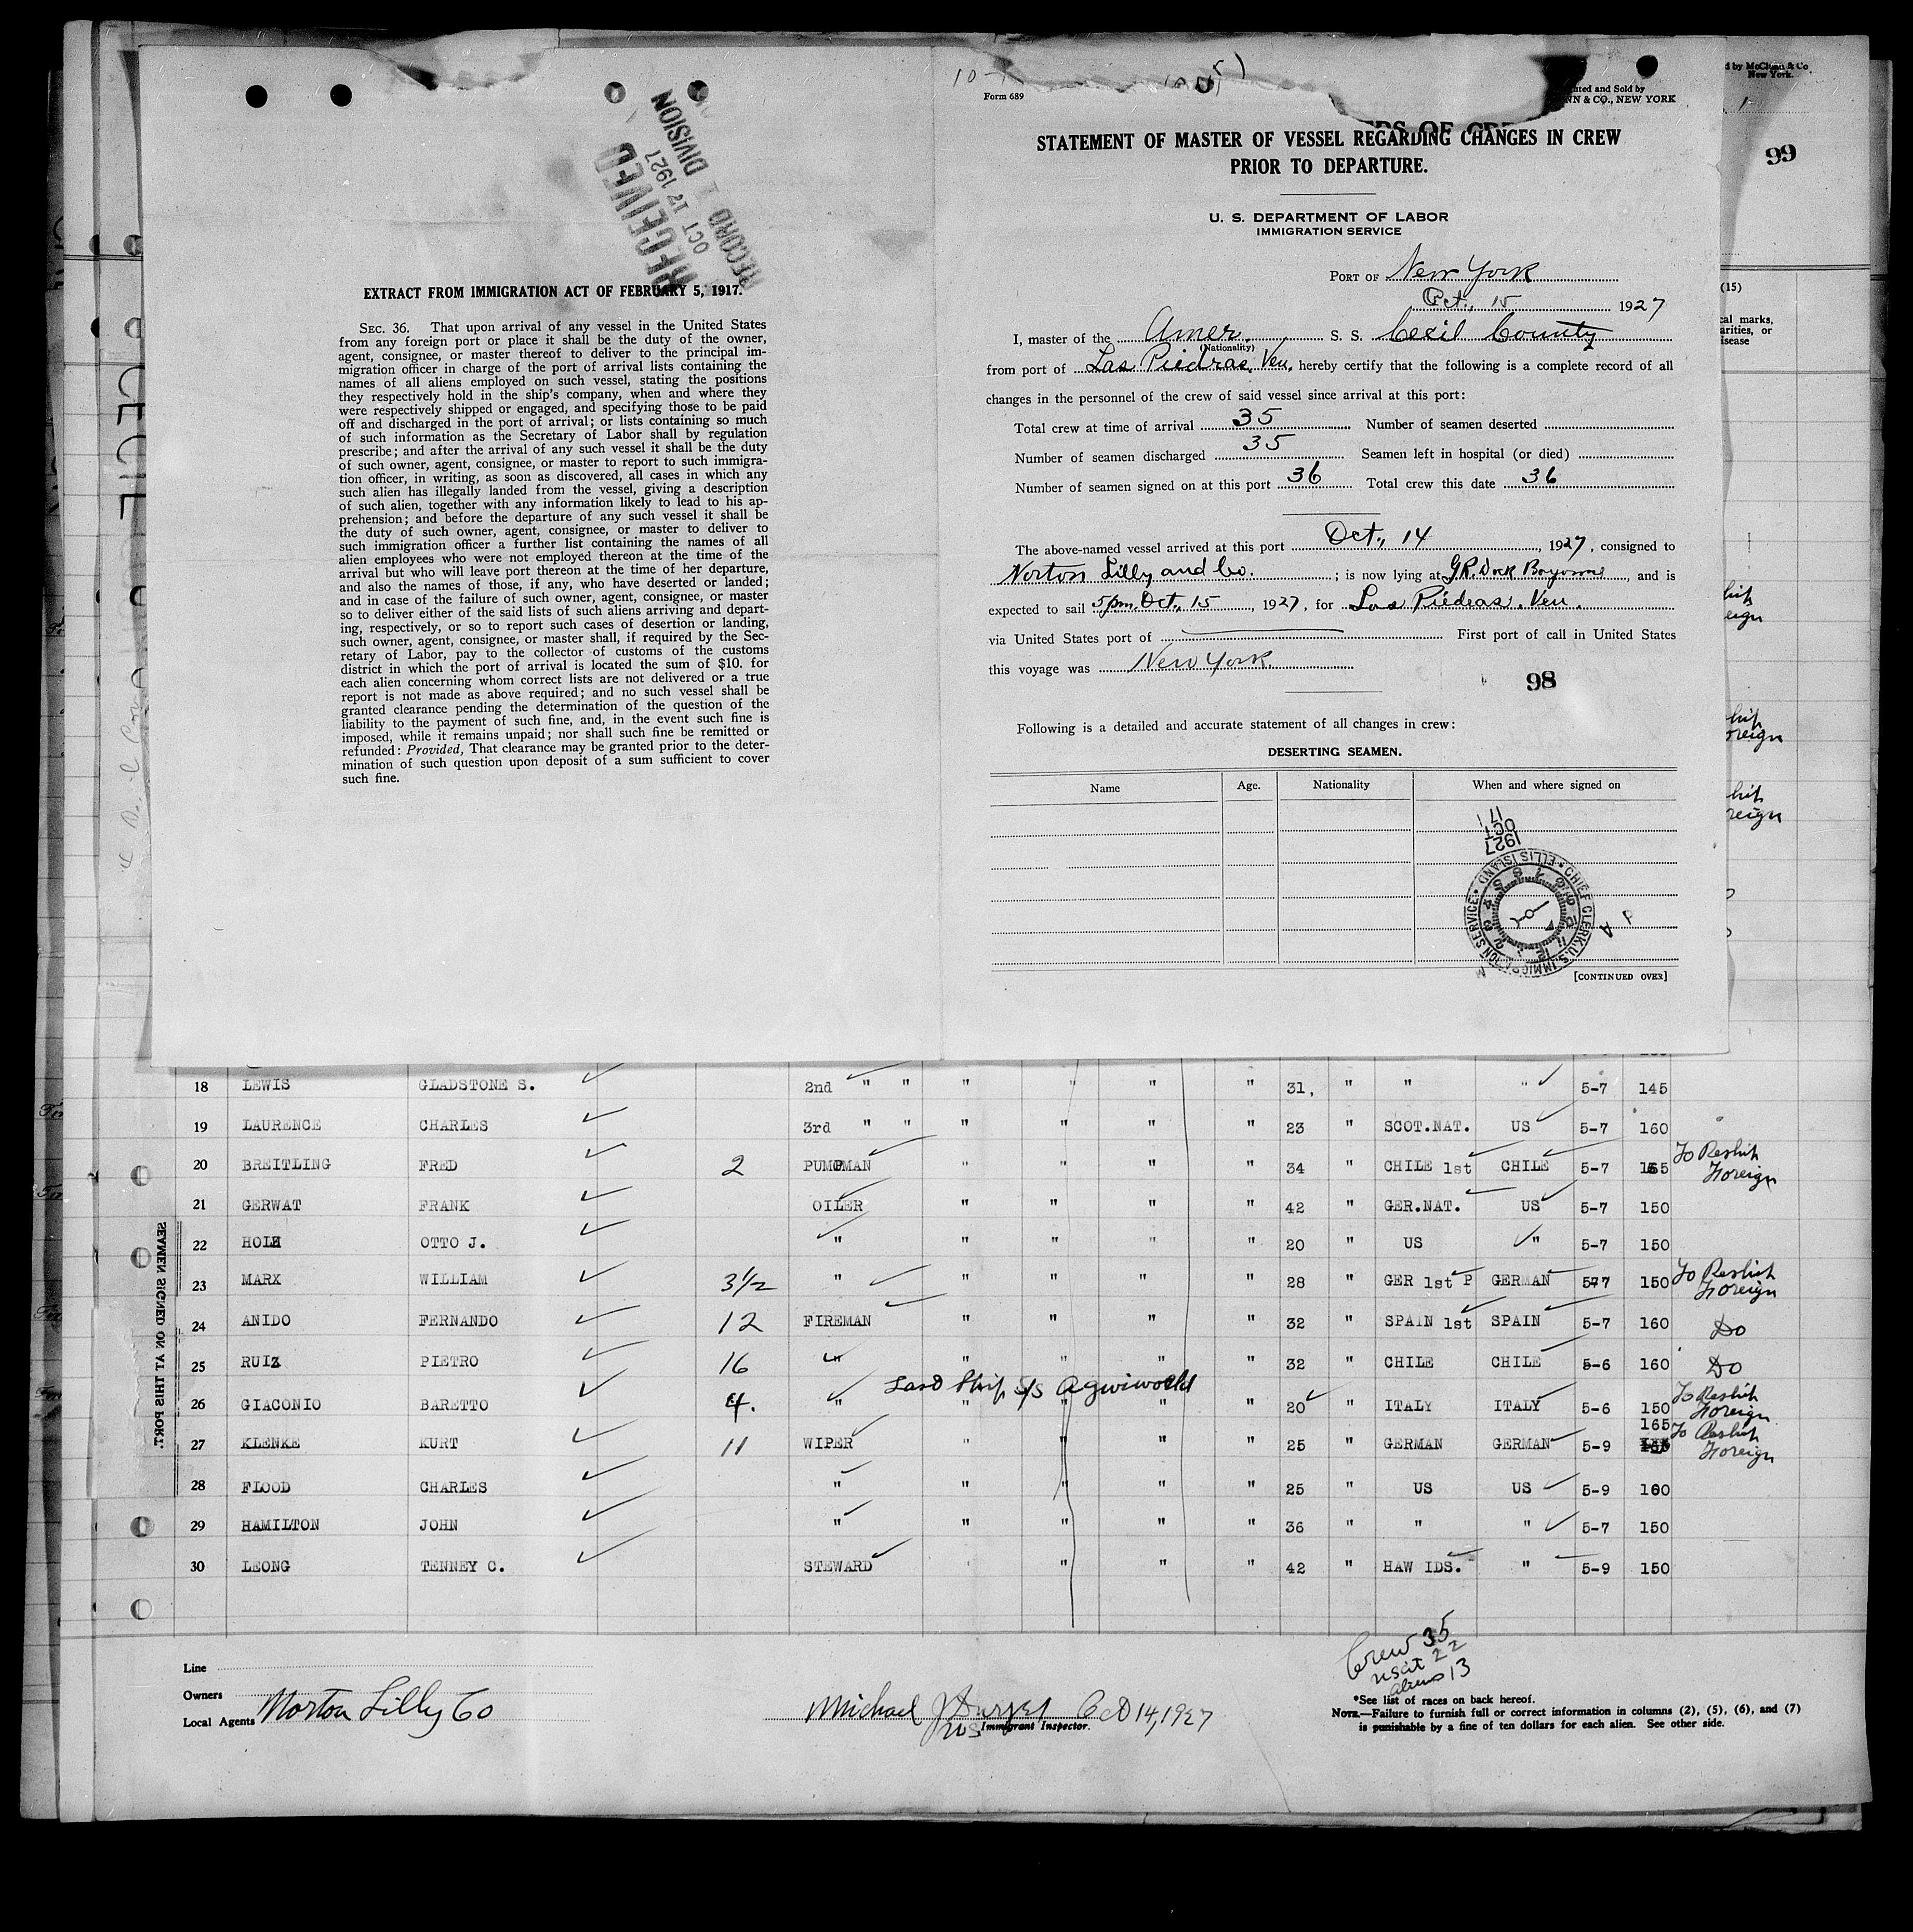 RECEIVED
OCT 17 1927
RECORD DIVISION
EXTRACT FROM IMMIGRATION ACT OF FEBRUARY 5, 1917.
SEC. 36. That upon arrival of any vessel in the United States
from any foreign port or place it shall be the duty of the owner,
agent, consignee, or master thereof to deliver to the principal im-
migration officer in charge of the port of arrival lists containing the
names of all aliens employed on such vessel, stating the positions
they respectively hold in the ship's company, when and where they
were respectively shipped or engaged, and specifying those to be paid
off and discharged in the port of arrival; or lists containing so much
of such information as the Secretary of Labor shall by regulation
prescribe; and after the arrival of any such vessel it shall be the duty
of such owner, agent, consignee, or master to report to such immigra-
tion officer, in writing, as soon as discovered, all cases in which any
such alien has illegally landed from the vessel, giving a description
of such alien, together with any information likely to lead to his ap-
prehension; and before the departure of any such vessel it shall be
the duty of such owner, agent, consignee, or master to deliver to
such immigration officer a further list containing the names of all
alien employees who were not employed thereon at the time of the
arrival but who will leave port thereon at the time of her departure,
and also the names of those, if any, who have deserted or landed;
and in case of the failure of such owner, agent, consignee, or master
so to deliver either of the said lists of such aliens arriving and depart-
ing, respectively, or so to report such cases of desertion or landing,
such owner, agent, consignee, or master shall, if required by the Sec-
retary of Labor, pay to the collector of customs of the customs
district in which the port of arrival is located the sum of $10. for
each alien concerning whom correct lists are not delivered or a true
report is not made as above required; and no such vessel shall be
granted clearance pending the determination of the question of the
liability to the payment of such fine, and, in the event such fine is
imposed, while it remains unpaid; nor shall such fine be remitted or
refunded: Provided, That clearance may be granted prior to the deter-
mination of such question upon deposit of a sum sufficient to cover
such fine.
Form 689
NN & CO., NEW YORK
STATEMENT OF MASTER OF VESSEL REGARDING CHANGES IN CREW
PRIOR TO DEPARTURE.
U. S. DEPARTMENT OF LABOR
IMMIGRATION SERVICE
PORT OF New York
Oct., 15 1927
I, master of the Amer. S. S. Cecil County
(Nationality)
from port of Las Piedras, Ven., hereby certify that the following is a complete record of all
changes in the personnel of the crew of said vessel since arrival at this port:
Total crew at time of arrival 35 Number of seamen deserted
Number of seamen discharged 35 Seamen left in hospital (or died)
Number of seamen signed on at this port 36 Total crew this date 36
The above-named vessel arrived at this port Oct., 14, 1927, consigned to
Norton Lilly and Co.; is now lying at G.R. Dock Bayonne, and is
expected to sail 5pm. Oct., 15, 1927, for Las Piedras. Ven.
via United States port of First port of call in United States
this voyage was New York.
98
Following is a detailed and accurate statement of all changes in crew:
DESERTING SEAMEN.
Name Age. Nationality When and where signed on
1927 OCT 17
CHIEF CLERK U.S. IMMIGRATION SERVICE · ELLIS ISLAND
[CONTINUED OVER]
d by McClunn & Co
New York.
99
(15)
cal marks,
arities, or
isease
CECIL
SEAMEN SIGNED ON AT THIS PORT.
18 LEWIS GLADSTONE S. 2nd " " " " " " 31, " " " 5-7 145
19 LAURENCE CHARLES 3rd " " " " " " 23 " SCOT.NAT. US 5-7 160
20 BREITLING FRED 2 PUMPMAN " " " 34 " CHILE 1st CHILE 5-7 165 To Reship Foreign
21 GERWAT FRANK OILER " " " " 42 " GER.NAT. US 5-7 150
22 HOLZ OTTO J. " " " " " 20 " US " 5-7 150
23 MARX WILLIAM 3½ " " " " " 28 " GER 1st P GERMAN 5-7 150 To Reship Foreign
24 ANIDO FERNANDO 12 FIREMAN " " " " 32 " SPAIN 1st SPAIN 5-7 160 Do
25 RUIZ PIETRO 16 " " " " " 32 " CHILE CHILE 5-6 160 Do
Last Ship S/S Agwiworld
26 GIACONIO BARETTO 4. " " " " " 20 " ITALY ITALY 5-6 150 To Reship Foreign
27 KLENKE KURT 11 WIPER " " " " 25 " GERMAN GERMAN 5-9 165 To Reship Foreign
28 FLOOD CHARLES " " " " " 25 " US US 5-9 160
29 HAMILTON JOHN " " " " " 36 " " " 5-7 150
30 LEONG TENNEY C. STEWARD " " " " 42 " HAW IDS. " 5-9 150
Crew 35
USCit 22
Aliens 13
Line
Owners
Local Agents Norton Lilly Co
Michael J Oct 14, 1927
Immigrant Inspector.
*See list of races on back hereof.
NOTE.—Failure to furnish full or correct information in columns (2), (5), (6), and (7)
is punishable by a fine of ten dollars for each alien. See other side.